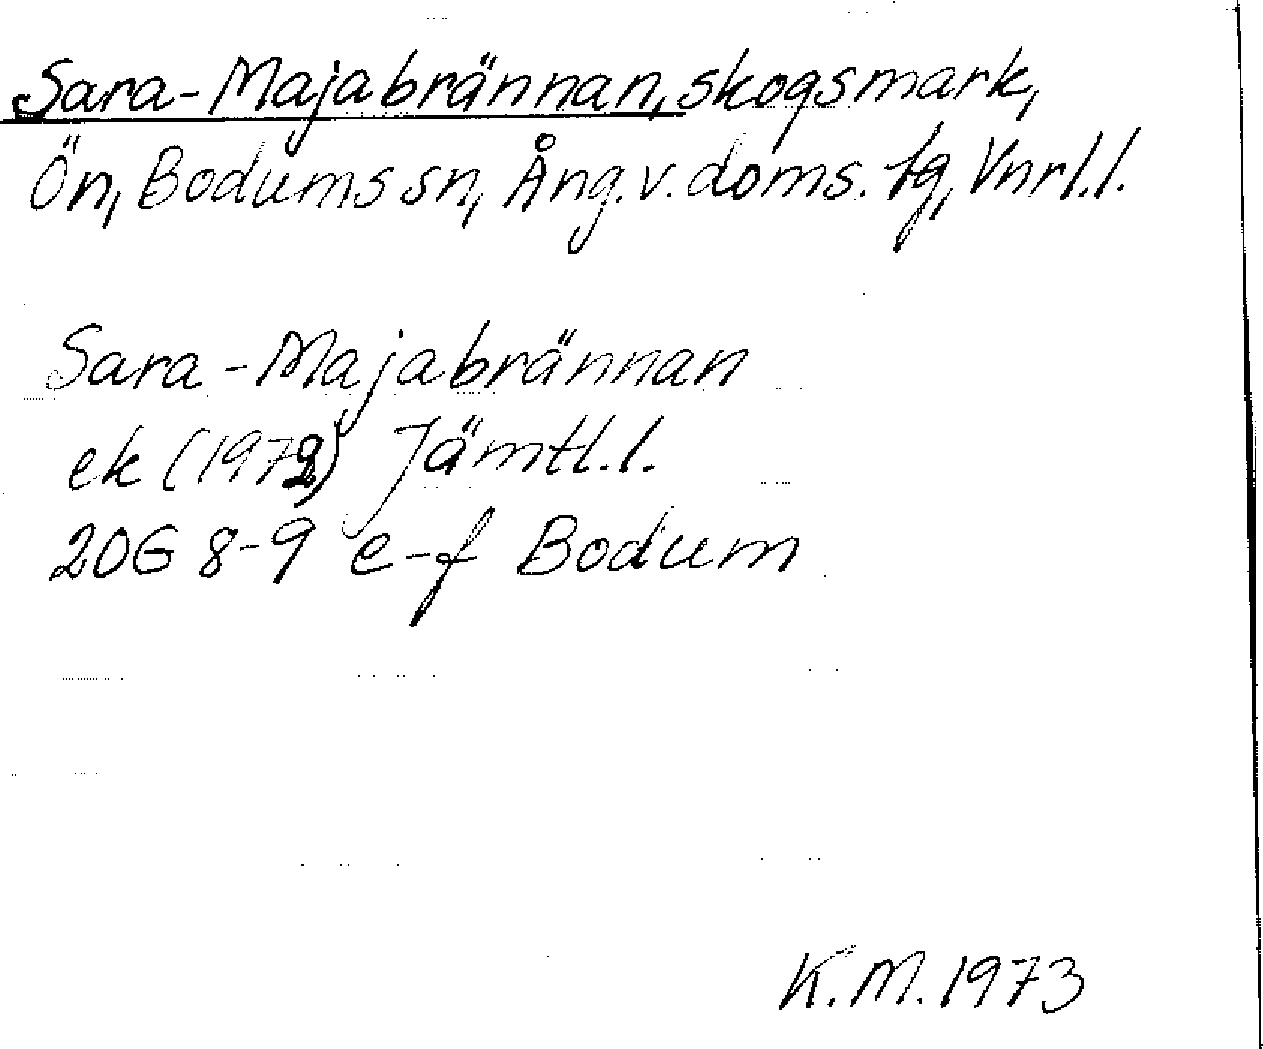 Sara-Majabrännan, skogsmark,
Ön, Bodums sn, Ång. v. doms. tg, Vnrl. l.
Sara-Majabrännan
ek (1972) Jämtl. l.
20G 8-9 e-f Bodum
K. M. 1973